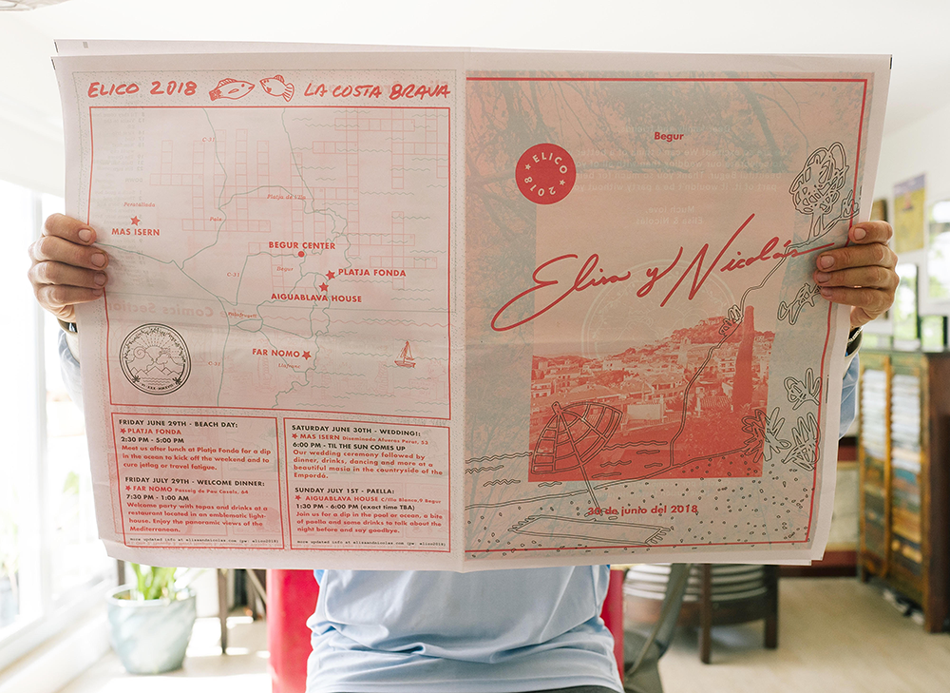 ELICO 2018
LA COSTA BRAVA
C-31
Peratallada
MAS ISERN
Pals
Platja de Pals
BEGUR CENTER
Begur
PLATJA FONDA
C-31
AIGUABLAVA HOUSE
FAR NOMO
Llafranc
C-31
FRIDAY JUNE 29TH - BEACH DAY:
PLATJA FONDA
2:30 PM - 5:00 PM
Meet us after lunch at Platja Fonda for a dip
in the ocean to kick off the weekend and to
cure jetlag or travel fatigue.
FRIDAY JULY 29TH - WELCOME DINNER:
FAR NOMO Passeig de Pau Casals, 64
7:30 PM - 1:00 AM
Welcome party with tapas and drinks at a
restaurant located in an emblematic light-
house. Enjoy the panoramic views of the
Mediterranean.
more updated info at elisaandnicolas.com (pw: elico2018)
SATURDAY JUNE 30TH - WEDDING!:
MAS ISERN Diseminado Afueras Perat, 53
6:00 PM - TIL THE SUN COMES UP
Our wedding ceremony followed by
dinner, drinks, dancing and more at a
beautiful masia in the countryside of the
Empordá.
SUNDAY JULY 1ST - PAELLA:
AIGUABLAVA HOUSE C/Illa Blanca,9 Begur
1:30 PM - 6:00 PM (exact time TBA)
Join us for a dip in the pool or ocean, a bite
of paella and some drinks to talk about the
night before and say goodbye.
more updated info at elisaandnicolas.com (pw: elico2018)
Begur
ELICO
2018
Elisa y Nicolás
30 de junio del 2018